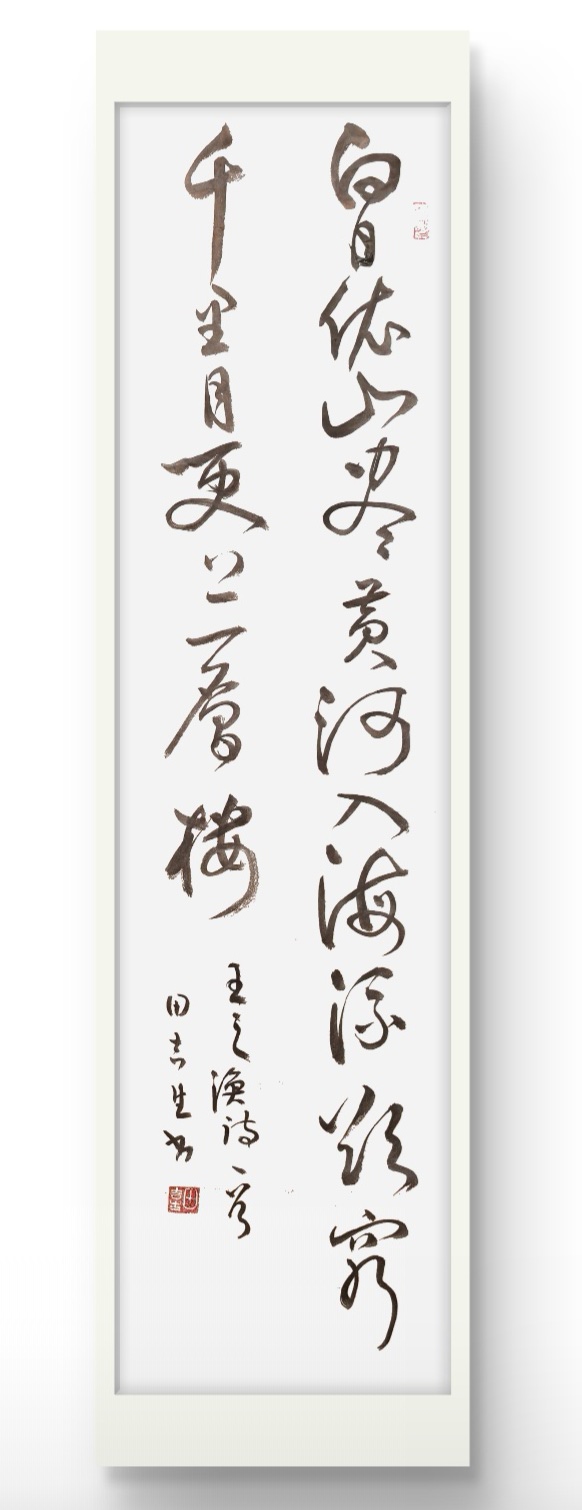 白日依山尽黄河入海流欲窮
千里目更上一層樓
王之渙诗一首
田吉生书